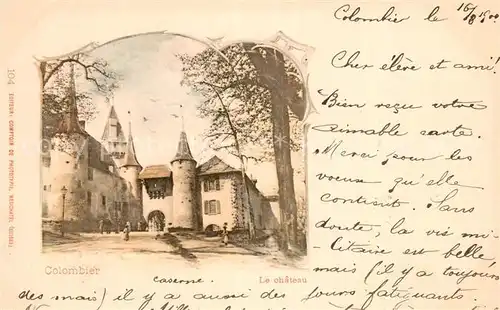 Colombier le 16/8 1900
Cher élève et ami!
Bien reçu votre
aimable carte.
Merci pour les
voeux qu'elle
contient. Sans
doute, la vie mi-
litaire est belle,
mais (il y a toujours
des mais) il y a aussi des jours fatiguants.
Colombier
caserne.
Le château
104 EDITEUR: COMPTOIR DE PHOTOTYPIE, NEUCHÂTEL (SUISSE).